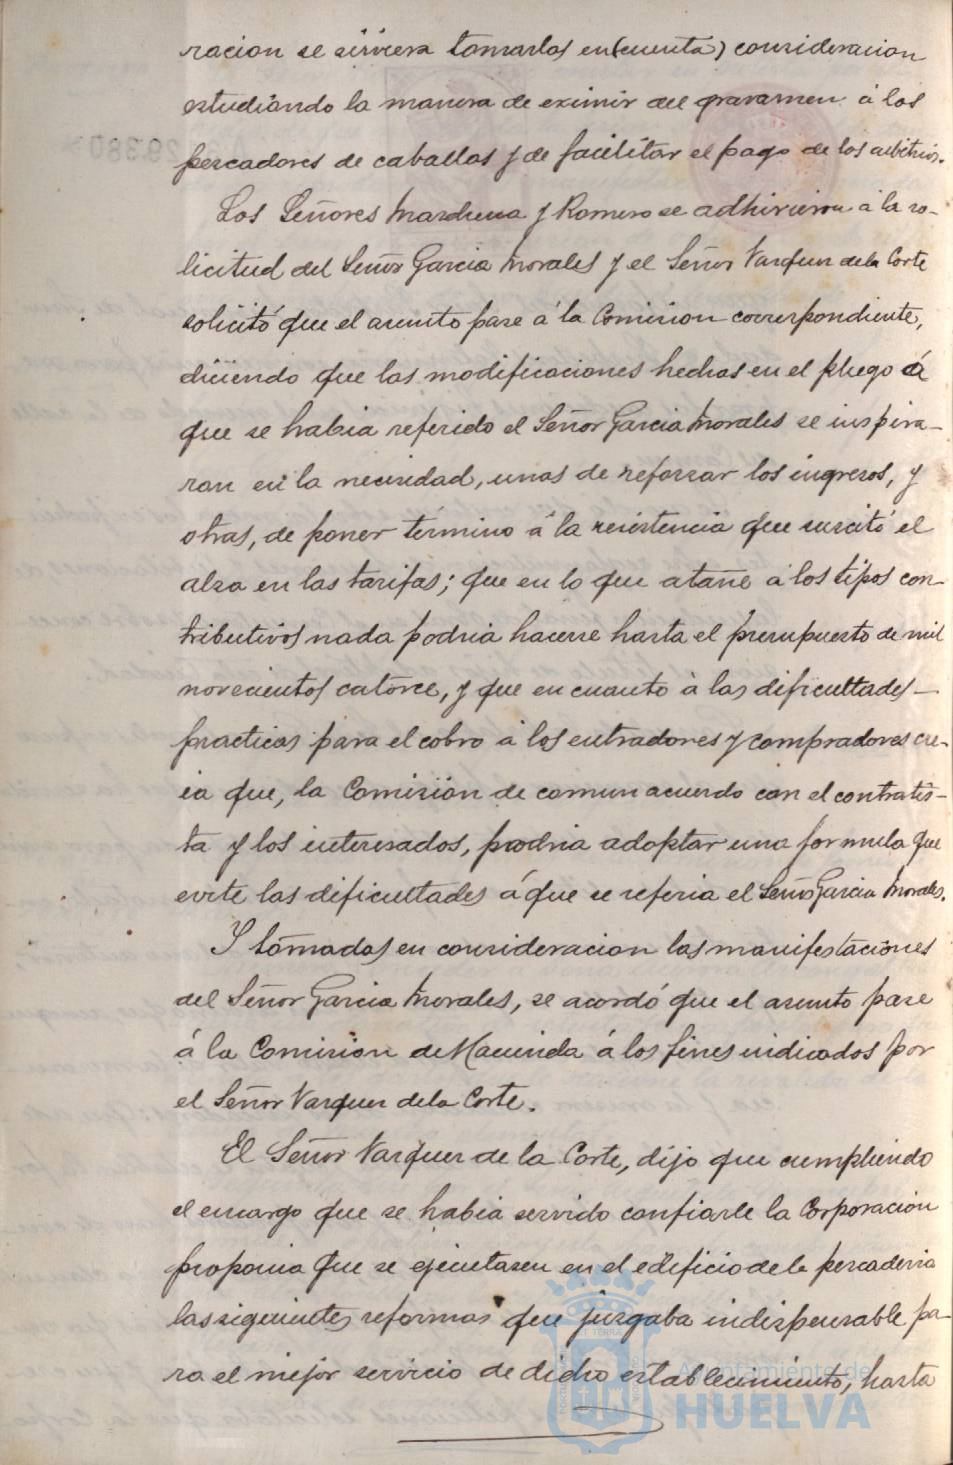 racion se sirviera tomarlos en (cuenta) consideracion
estudiando la manera de eximir del gravamen á los
pescadores de caballas y de facilitar el pago de los arbitrios.
Los Señores Marchena y Romero se adhirieron á la so-
licitud del Señor Garcia Morales y el Señor Vazquez de la Corte
solicitó que el asunto pase á la Comision correspondiente,
diciendo que las modificaciones hechas en el pliego á
que se habia referido el Señor Garcia Morales se inspira-
ran en la necesidad, unas de reforzar los ingresos, y
otras, de poner término á la resistencia que suscitó el
alza en las tarifas; que en lo que atañe á los tipos con-
tributivos nada podria hacerse hasta el presupuesto de mil
novecientos catorce, y que en cuanto á las dificultades-
practicas para el cobro á los entradores y compradores cre-
ia que, la Comision de comun acuerdo con el contratis-
ta y los interesados, podria adoptar una formula que
evite las dificultades á que se referia el Señor Garcia Morales.
Y tomadas en consideracion las manifestaciones
del Señor Garcia Morales, se acordó que el asunto pase
á la Comision de Hacienda á los fines indicados por
el Señor Vazquez de la Corte.
El Señor Vazquez de la Corte, dijo que cumpliendo
el encargo que se habia servido confiarle la Corporacion
proponia que se ejecutasen en el edificio de la pescaderia
las siguientes reformas que juzgaba indispensable pa-
ra el mejor servicio de dicho establecimiento, hasta
Ayuntamiento de
HUELVA